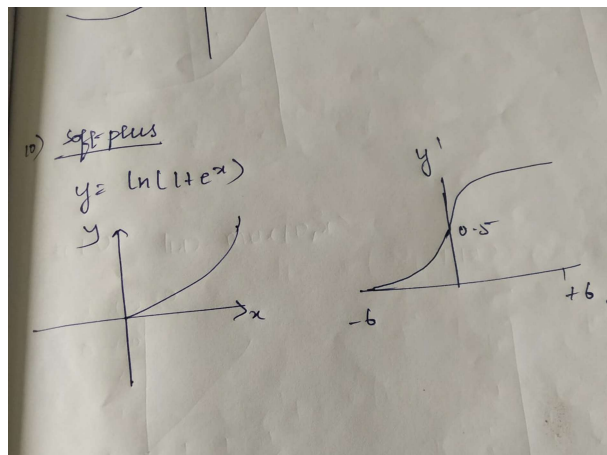 10) Soft-plus
y = ln(1+e^x)
y
x
y'
0.5
-6
+6